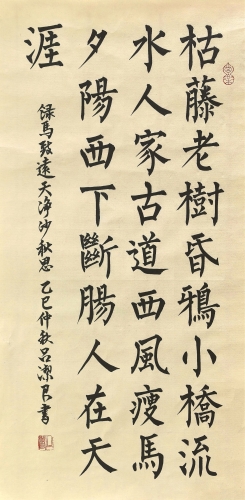 枯藤老樹昏鴉小橋流
水人家古道西風瘦馬
夕陽西下斷腸人在天
涯
錄馬致遠天淨沙秋思 乙巳仲秋呂潔民書